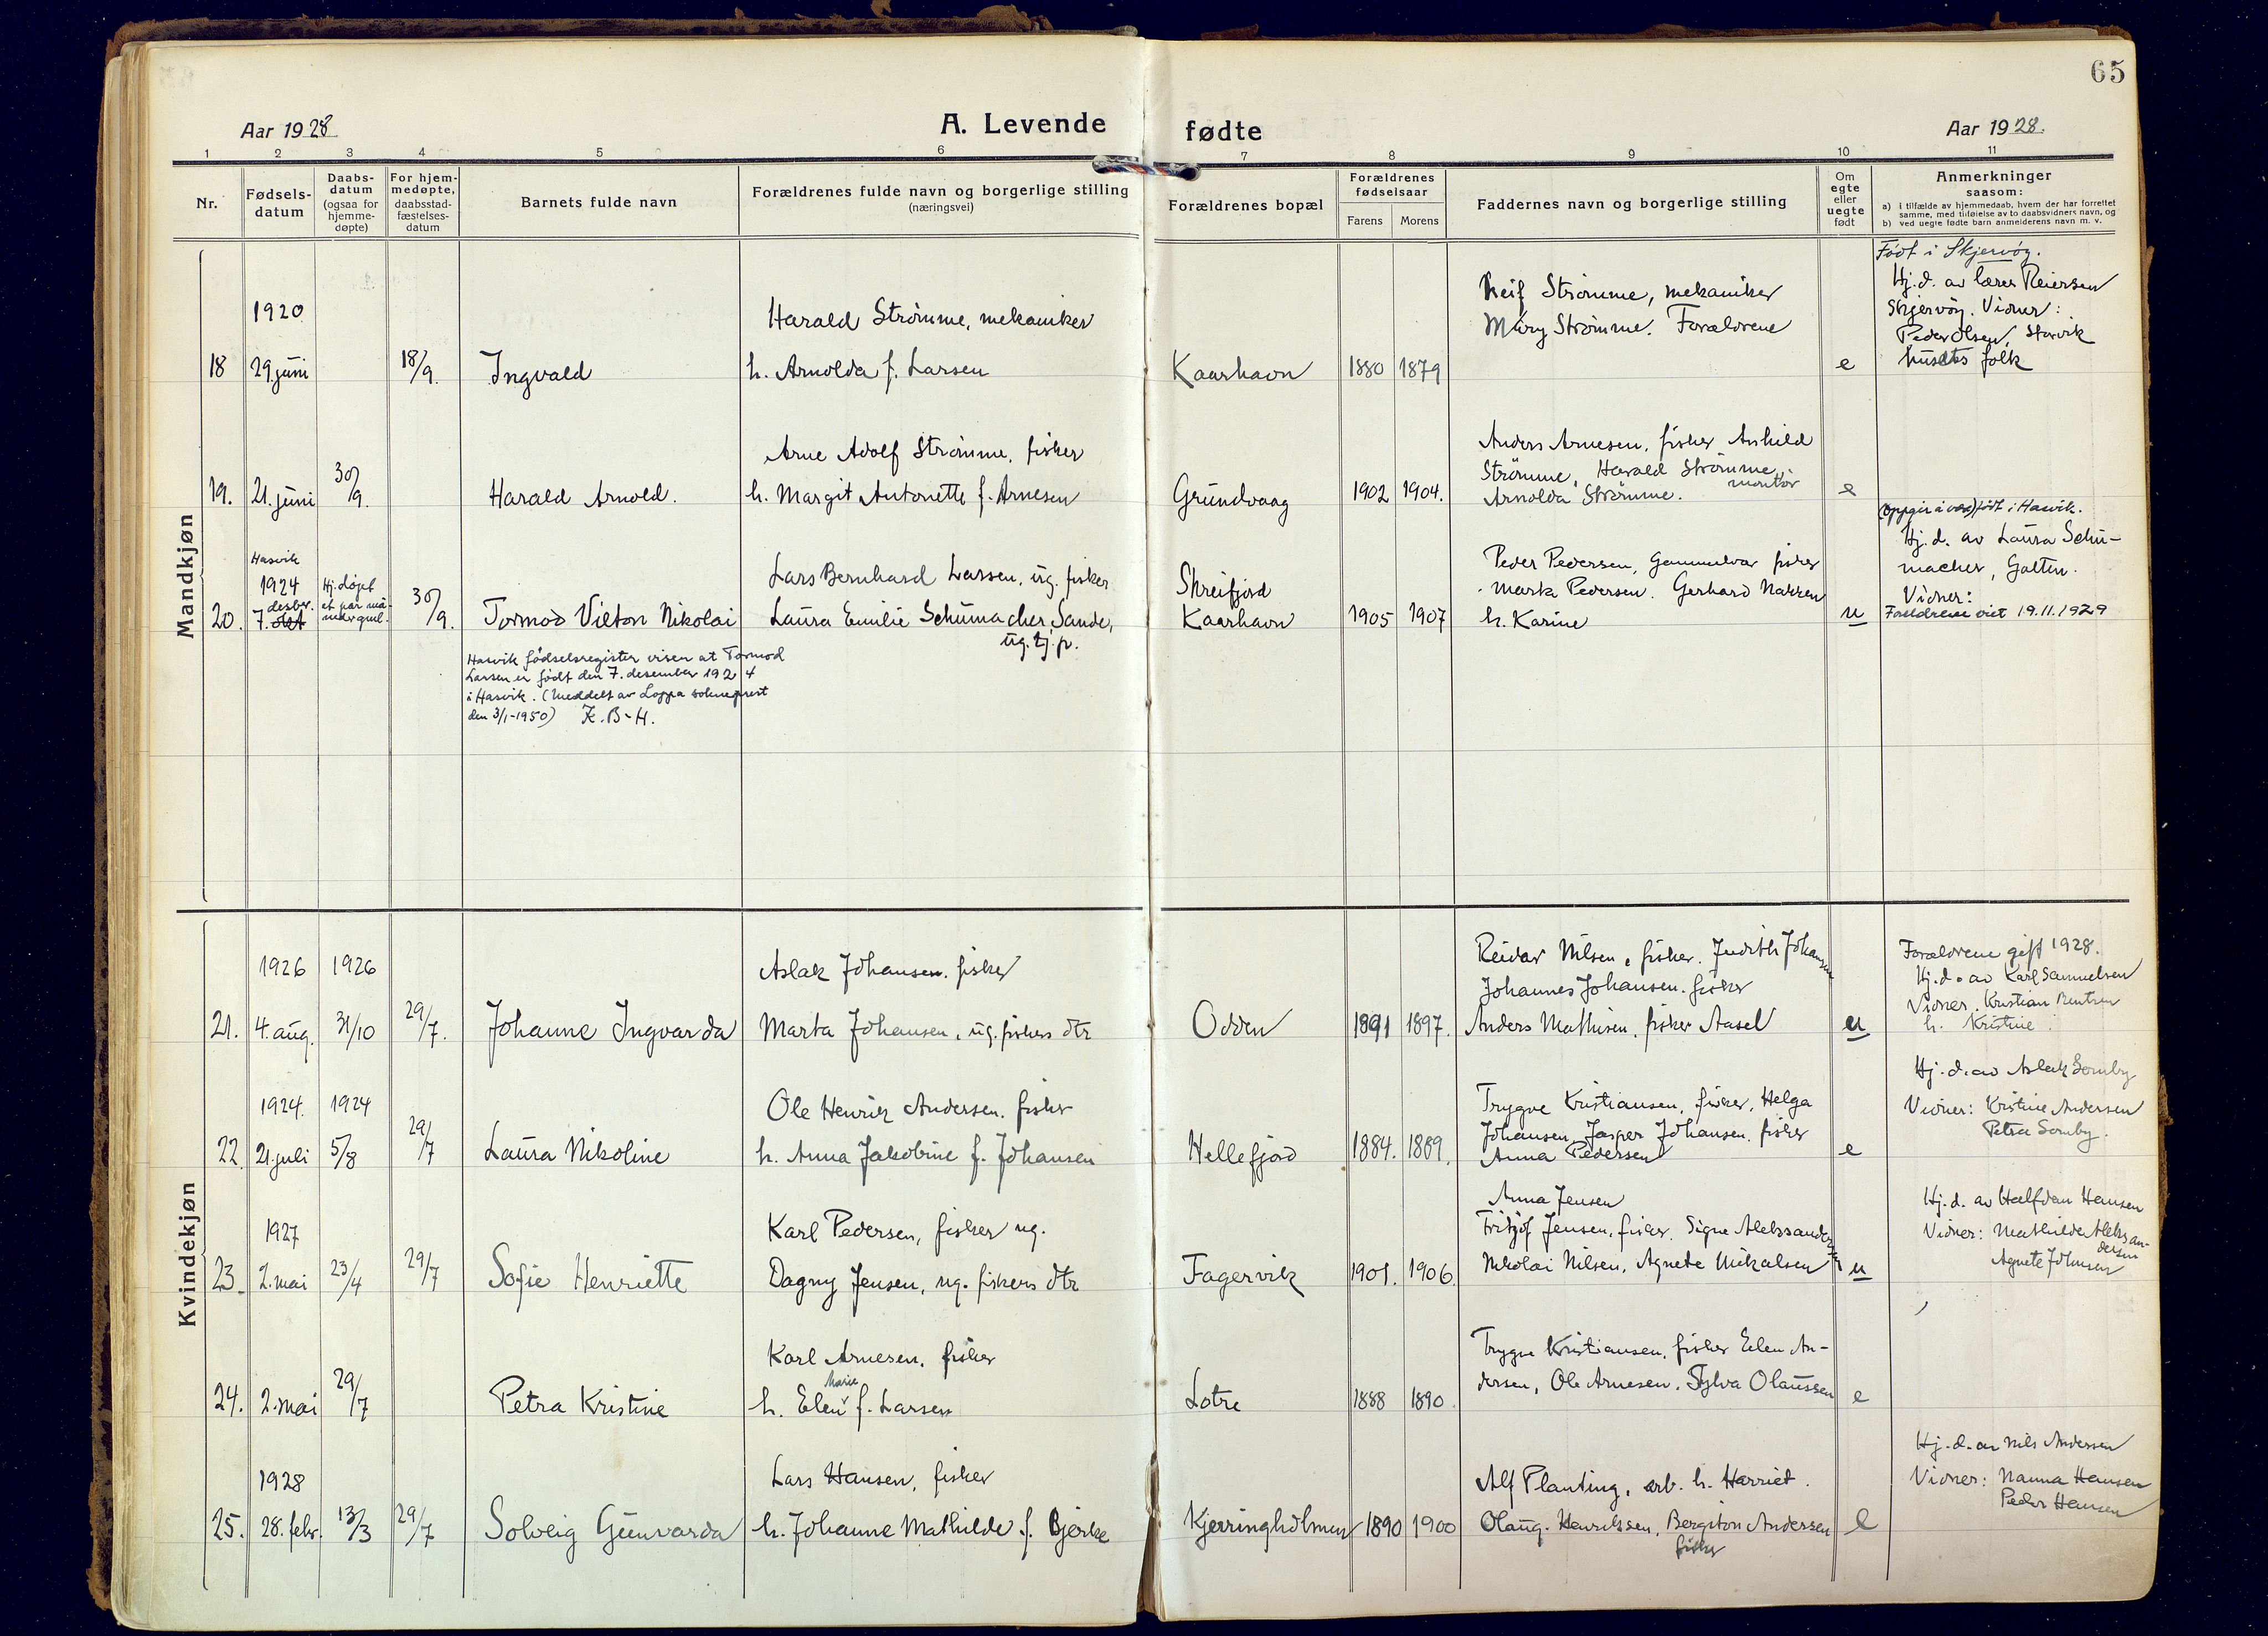 65
Aar 1928
A. Levende fødte
Aar 1928.
1 2 3 4 5 6 7 8 9 10 11
Nr.
Fødsels-
datum
Daabs-
datum
(ogsaa for
hjemme-
døpte)
For hjem-
medøpte,
daabsstad-
fæstelses-
datum
Barnets fulde navn
Forældrenes fulde navn og borgerlige stilling
(næringsvei)
Forældrenes bopæl
Forældrenes
fødselsaar
Farens Morens
Faddernes navn og borgerlige stilling
Om
egte
eller
uegte
født
Anmerkninger
saasom:
a) i tilfælde av hjemmedaab, hvem der har forrettet
samme, med tilføielse av to daabsvidners navn, og
b) ved uegte fødte barn anmelderens navn m. v.
Mandkjøn
18
1920
29 juni
18/9.
Ingvald
Harald Strømme, mekaniker
h. Arnolda f. Larsen
Kaarhavn
1880 1879
Leif Strømme, mekaniker
Mary Strømme. Forældrene
e
Født i Skjervøy.
Hj.d. av lærer Reiersen
Skjervøy. Vidner:
Peder Olsen, Storvik
husets folk
19.
21. juni
30/9.
Harald Arnold.
Arne Adolf Strømme, fisker
h. Margit Antonette f. Arnesen
Grundvaag
1902 1904.
Anders Arnesen, fisker Anhild
Strømme, Harald Strømme,
montør
Arnolda Strømme.
e
20.
Hasvik
1924
desbr.
7. okt
Hj. døpt
et par må-
neder gml.
30/9.
Tormod Vilton Nikolai
Hasvik fødselsregister viser at Tormod
Larsen er født den 7. desember 1924
i Hasvik. (Meddelt av Loppa sokneprest
den 3/1-1950) K. B-H.
Lars Bernhard Larsen, ug. fisker
Laura Emilie Schumacher Sande,
ug. tj. p.
Skreifjord
Kaarhavn
1905 1907
Peder Pedersen, Gammelvær fisker
Marta Pedersen. Gerhard Nakken
h. Karine
u
(oppgir å være) født i Hasvik.
Hj. d. av Laura Schu-
macher, Galten.
Vidner:
Foreldrene viet 19.11.1929
Kvindekjøn
21.
1926
4. aug.
1926
31/10
29/7.
Johanne Ingvarda
Aslak Johansen. fisker
Marta Johansen, ug. fiskers dtr
Odden
1891 1897.
Reidar Nilsen, fisker. Judith Johansen
Johannes Johansen. fisker
Anders Mathisen. fisker Aasel
u
Forældrene gift 1928.
Hj.d. av Karl Samuelsen
Vidner. Kristian Bentsen
h. Kristine
22
1924.
21. juli
1924
5/8
29/7
Laura Nikoline
Ole Henrik Andersen. fisker
h. Anna Jakobine f. Johansen
Hellefjord
1884. 1889.
Trygve Kristiansen, fisker, Helga
Johansen, Jasper Johansen. fisker
Anna Pedersen
e
Hj. d. av Aslak Somby
Vidner: Kristine Andersen
Petra Somby.
23
1927
2. mai
23/4
29/7
Sofie Henriette
Karl Pedersen, fisker ug.
Dagny Jensen, ug. fiskers dtr
Fagervik
1901. 1906.
Anna Jensen
Fritjof Jensen. fisker. Signe Aleksandersen
Nikolai Nilsen, Agnete Mikalsen
u
Hj. d. av Halfdan Hansen
Vidner: Mathilde Aleksan-
dersen
Agnete Johnsen
24.
2. mai
29/7
Petra Kristine
Karl Arnesen. fisker
Marie
h. Elen f. Larsen
Lotre
1888 1890.
Trygve Kristiansen, fisker Elen An-
dersen, Ole Arnesen. Sylva Olaussen
e
25.
1928
28. febr.
13/3
29/7
Solveig Gunvarda
Lars Hansen, fisker
h. Johanne Mathilde f. Bjerke
Kjerringholmen
1890 1900
Alf Planting, arb. h. Harriet.
Olaug. Henrikssen, Bergiton Andersen
fisker
e
Hj. d. av Nils Andersen
Vidner: Nanna Hansen
Peder Hansen